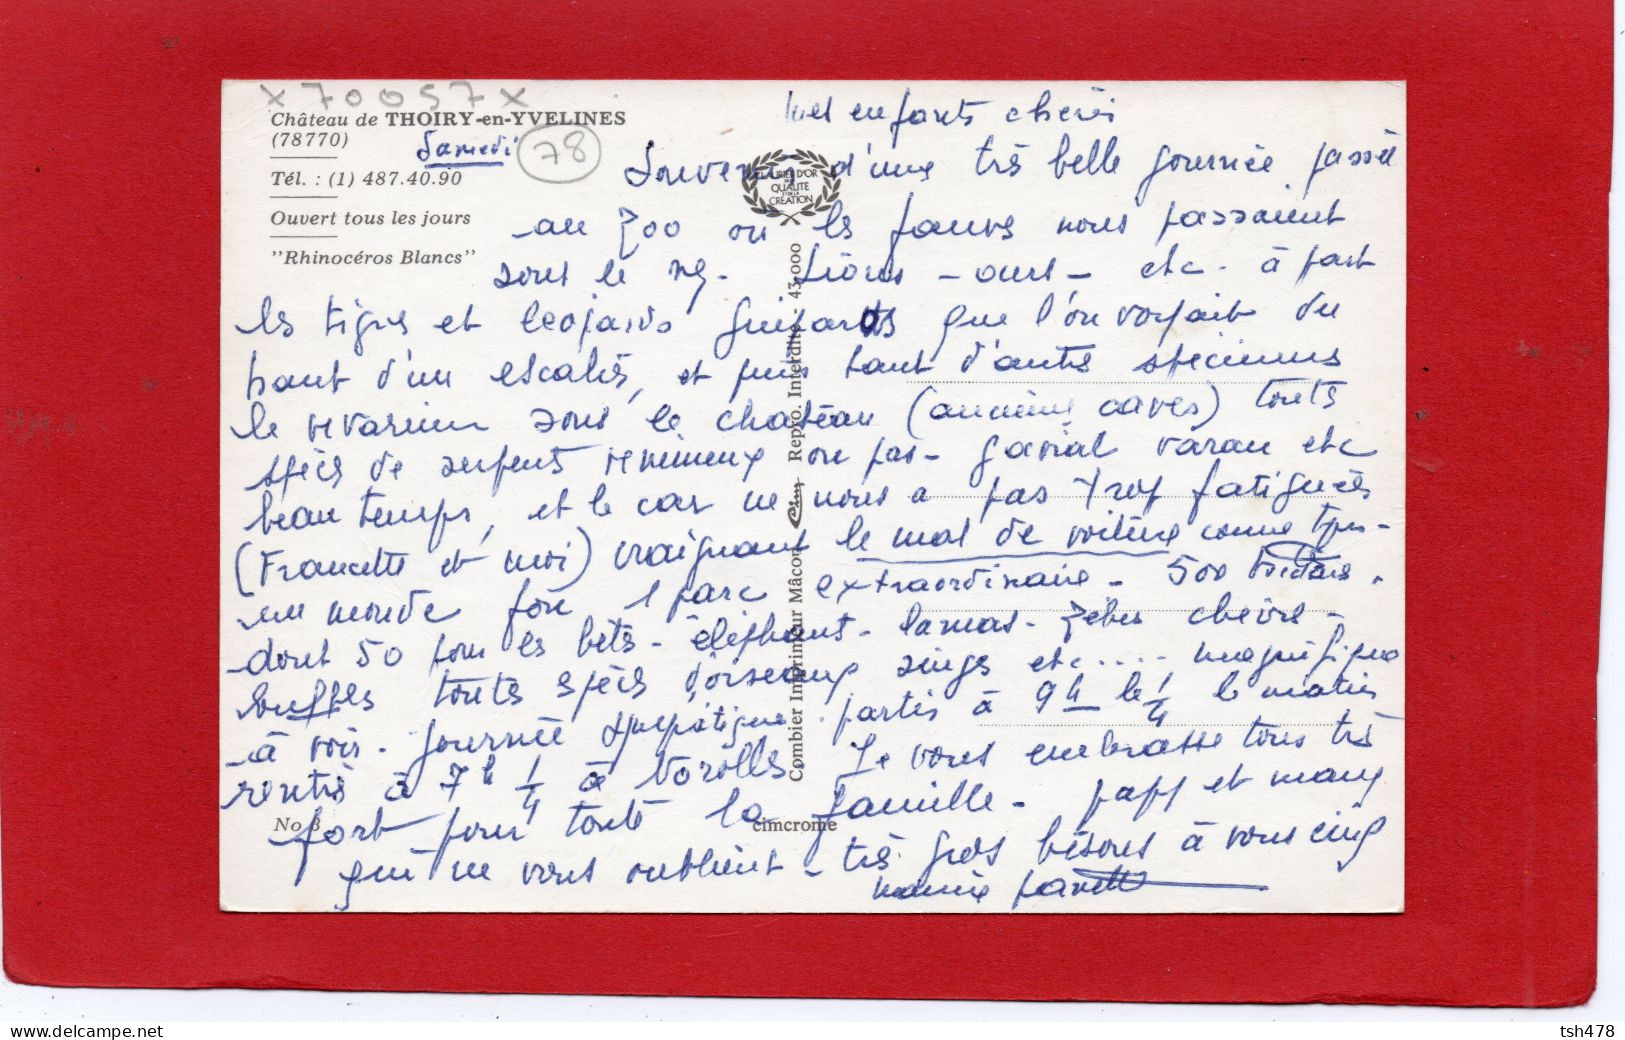 x 70057 x
Château de THOIRY-en-YVELINES
(78770)
Samedi
78
Tél. : (1) 487.40.90
Ouvert tous les jours
"Rhinocéros Blancs"
LAURIER D'OR
DE LA
QUALITÉ
ET DE LA
CRÉATION
Combier Imprimeur Mâcon Cim Repro. Interdite - 43.000
No 8
cimcrome
Mes enfants cheris
Souvenir d'une très belle journée passée
au zoo ou les fauves nous passaient
sous le nez. Lions - ours - etc. à part
les tigres et leopards guepards que l'on voyait du
haut d'un escalier, et puis tant d'autres specimens
le vivarium sous le chateau (anciennes caves) toutes
spèces de serpents venimeux ou pas - gavial varan etc
beau temps, et le car ne nous a pas trop fatiguées
(Francette et moi) craignant le mal de voiture comme
un monde fou 1 parc extraordinaire - 500 hectares.
dont 50 pour les betes - éléphants - lamas - zebus chèvres -
buffles toutes spèces d'oiseaux singes etc.... magnifique
à voir. journée sympatique. partis à 9h le 1/4 le matin
rentrés à 7h 1/4 à Je vous embrasse tous très
fort pour toute la famille - papy et mamy
qui ne vous oublient - très gros bisous à vous cinq
mamie
tsh478